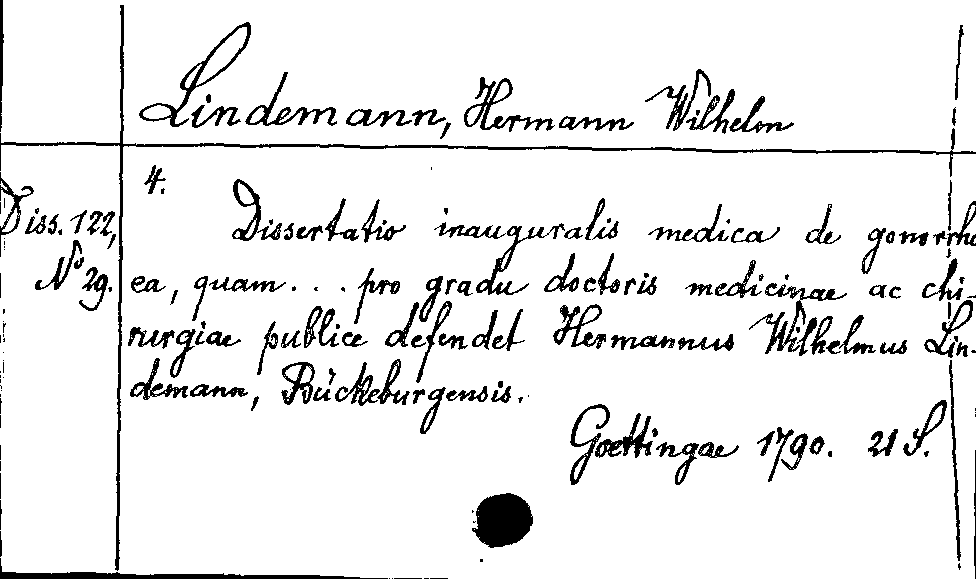 Lindemann, Hermann Wilhelm
4.
Diss. 122,
No 29.
Dissertatio inauguralis medica de gonorrho
ea, quam . . . pro gradu doctoris medicinae ac chi-
rurgiae publice defendet Hermannus Wilhelmus Lin-
demann, Bückeburgensis.
Goettingae 1790. 21 S.